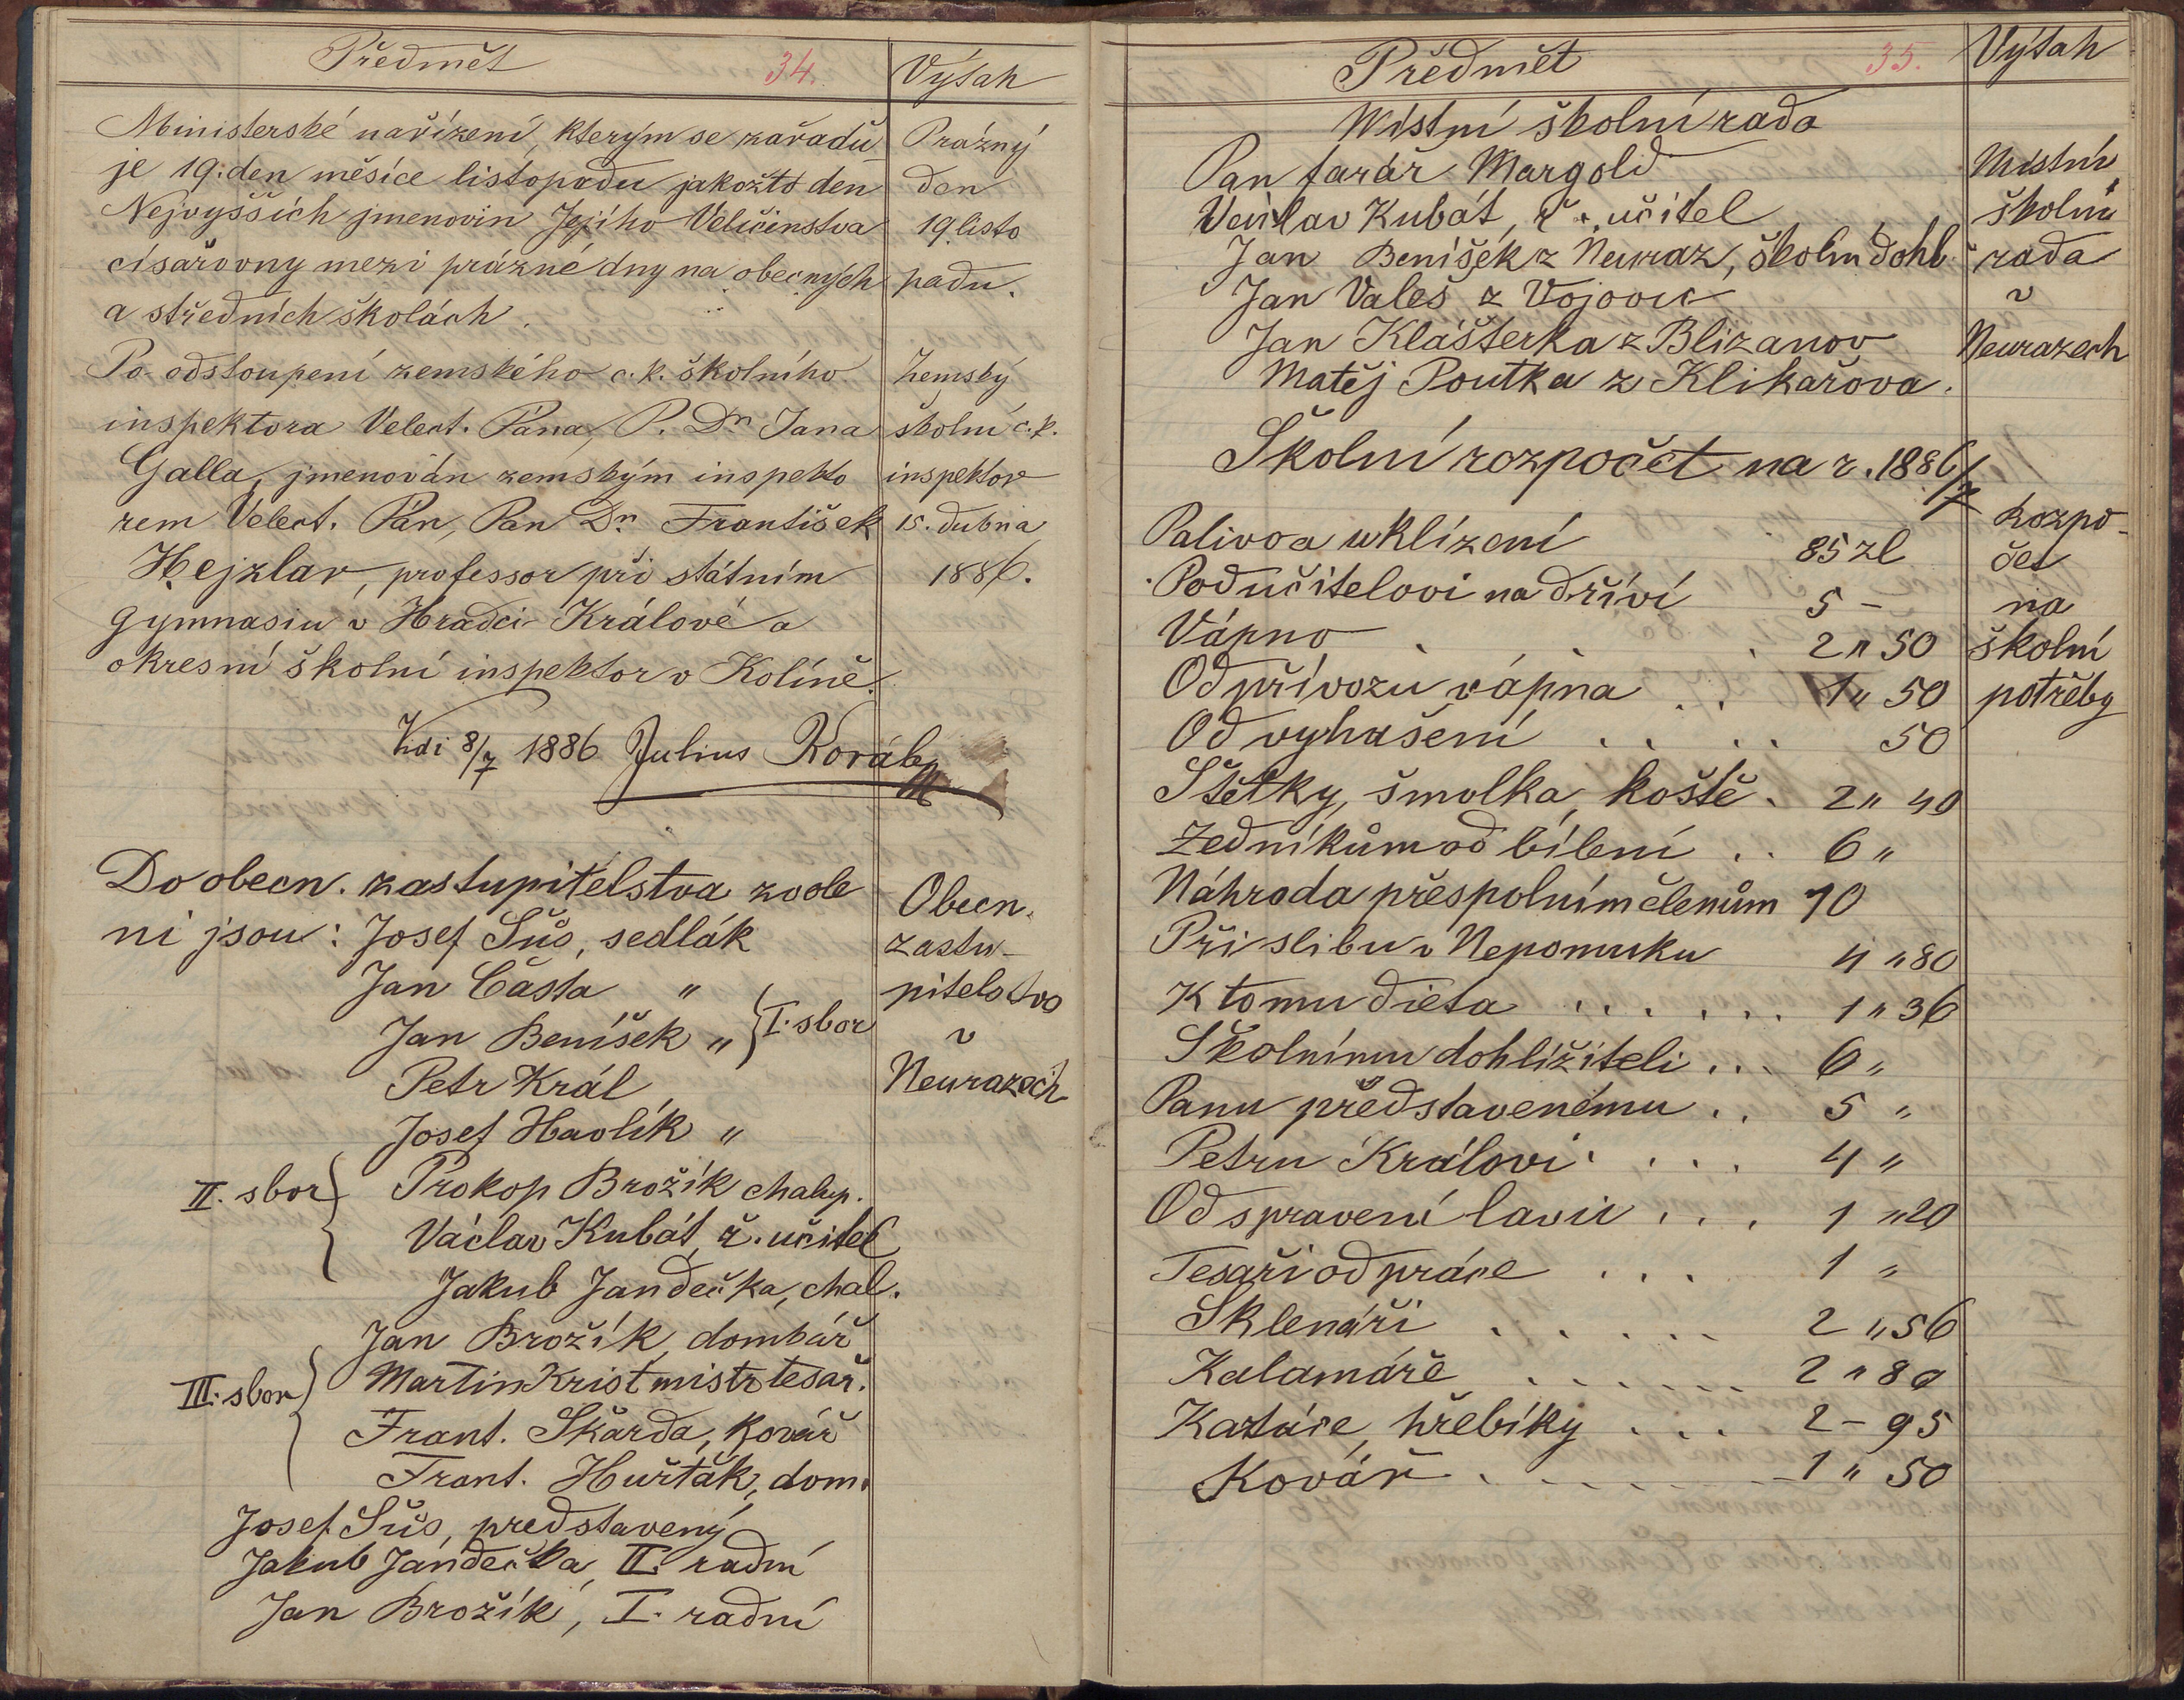 Předmět
34.
Výtah
Ministerské nařízení, kterým se zařadu
je 19. den měsíce listopadu jakožto den
Nejvyšších jmenovin Jejího Veličenstva
císařovny mezi prázné dny na obecných
a středních školách.
Prázný
den
19. listo
padu.
Po odstoupení zemského c. k. školního
inspektora Velect. Pána, P. Dr. Jana
Galla, jmenován zemským inspekto
rem Velect. Pán, Pan Dr. František
Hejzlar, professor při státním
gymnasiu v Hradci Králové a
okresní školní inspektor v Kolíně.
Zemský
školní c. k.
inspektor
15. dubna
1886.
Vidi 8/7 1886 Julius Koráb
Do obecn. zastupitelstva zvole
ni jsou: Josef Šůs, sedlák
Jan Částa "
Jan Beníšek " } I. sbor
Petr Král
Josef Havlík "
II. sbor { Prokop Brožík chalup.
Václav Kubát, ř. učitel
Jakub Jandečka, chal.
Jan Brožík, domkář
III. sbor { Martin Krist mistr tesař.
Frant. Skařda, kovář
Frant. Hurťák, dom.
Josef Šůs, představený
Jakub Jandečka, II. radní
Jan Brožík, I. radní
Obecn.
zastu-
pitelstvo
v
Neurazech
Předmět
35.
Výtah
Místní školní rada
Pan farář Margold
Václav Kubát, ř. učitel
Jan Beníšek z Neuraz, školní dohl.
Jan Valeš z Vojovic
Jan Klášterka z Blizanov
Matěj Poutka z Klikařova.
Místní
školní
rada
v
Neurazech
Školní rozpočet na r. 1886/7
Palivo a uklízení 85 zl
Podučitelovi na dříví 5 -
Vápno . . . 2 " 50
Od přívozu vápna . . 1 " 50
Od vyhašení . . . . 50
Štětky, šmolka, koště . 2 " 40
Zedníkům od bílení . . 6 "
Náhrada přespolním členům 10
Při slibu v Nepomuku 4 " 80
K tomu dieta . . . . . . 1 " 36
Školnímu dohlížiteli . . . 6 "
Panu představenému . . 5 "
Petru Královi . . . . 4 "
Od spravení lavic . . . 1 " 20
Tesaři od práce . . . 1 "
Sklenáři . . . . . 2 " 56
Kalamáře . . . . . . 2 " 80
Kartáče, hřebíky . . . 2 - 95
Kovář . . . . . . 1 " 50
Rozpo-
čet
na
školní
potřeby